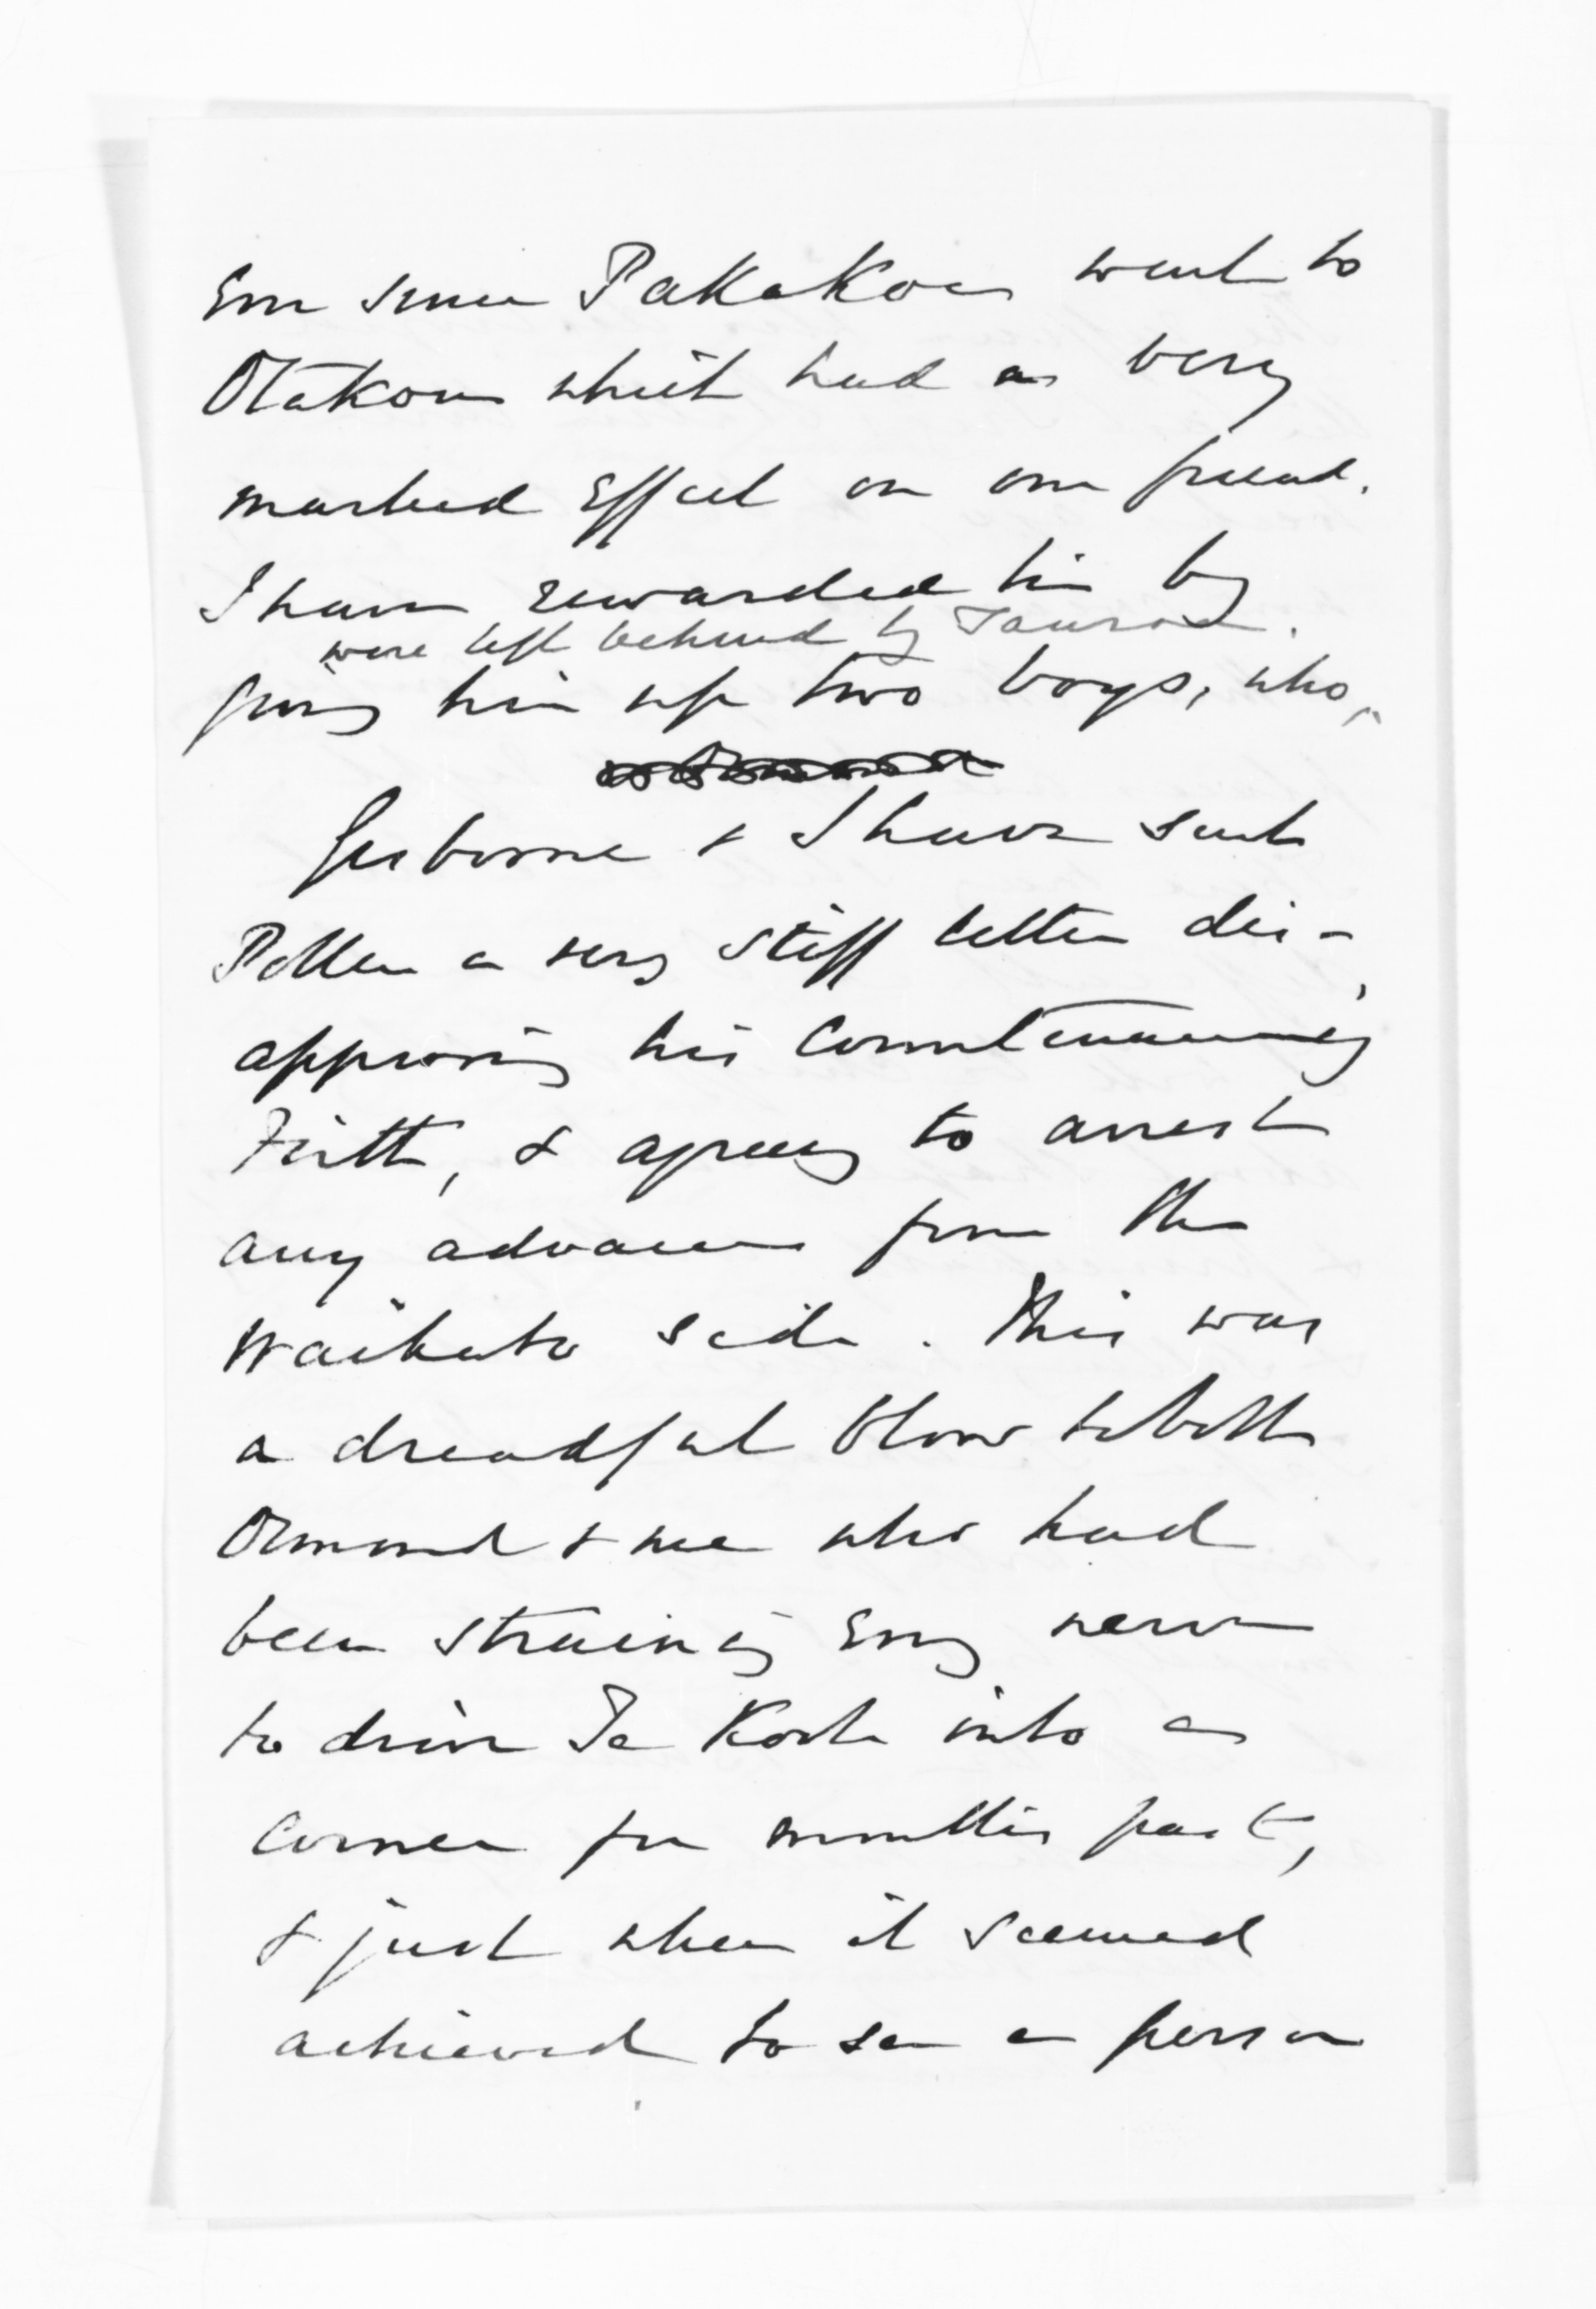 Ever since Pakakoea went to
Otakou which had a very
marked effect on our friend.
I have rewarded him by
were left behind by Tauroa.
giving him up two boys, who
Gisborne & I have sent
Pollen a very stiff letter dis-
approving his countenancing
Firth, & agreeing to arrest
any advance from the
Waikato side. This was
a dreadful blow to both
Ormond & me who had
been straining every nerve
to drive Te Kooti into a
corner for months past,
& just when it seemed
achieved to see a person